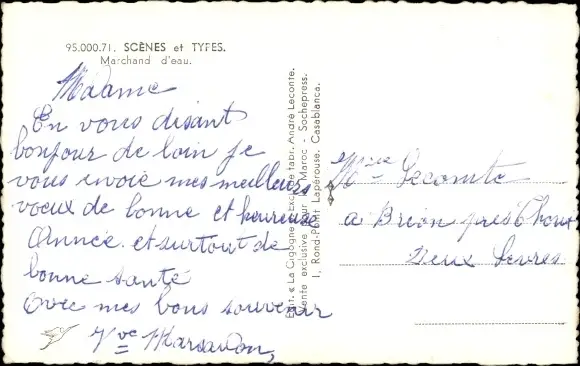 95.000.71. SCÈNES et TYPES.
Marchand d'eau.
Madame
En vous disant
bonjour de loin je
vous envoie mes meilleurs
voeux de bonne et heureuse
Année et surtout de
bonne santé
Avec mes bons souvenir
Vve
Edit. « La Cigogne » Exclus. fabr. André Leconte.
Vente exclusive pour Maroc - Sochepress.
1, Rond-Point Lapérouse, Casablanca.
Mme Lecomte
a Brion près Thouet
Deux Sèvres